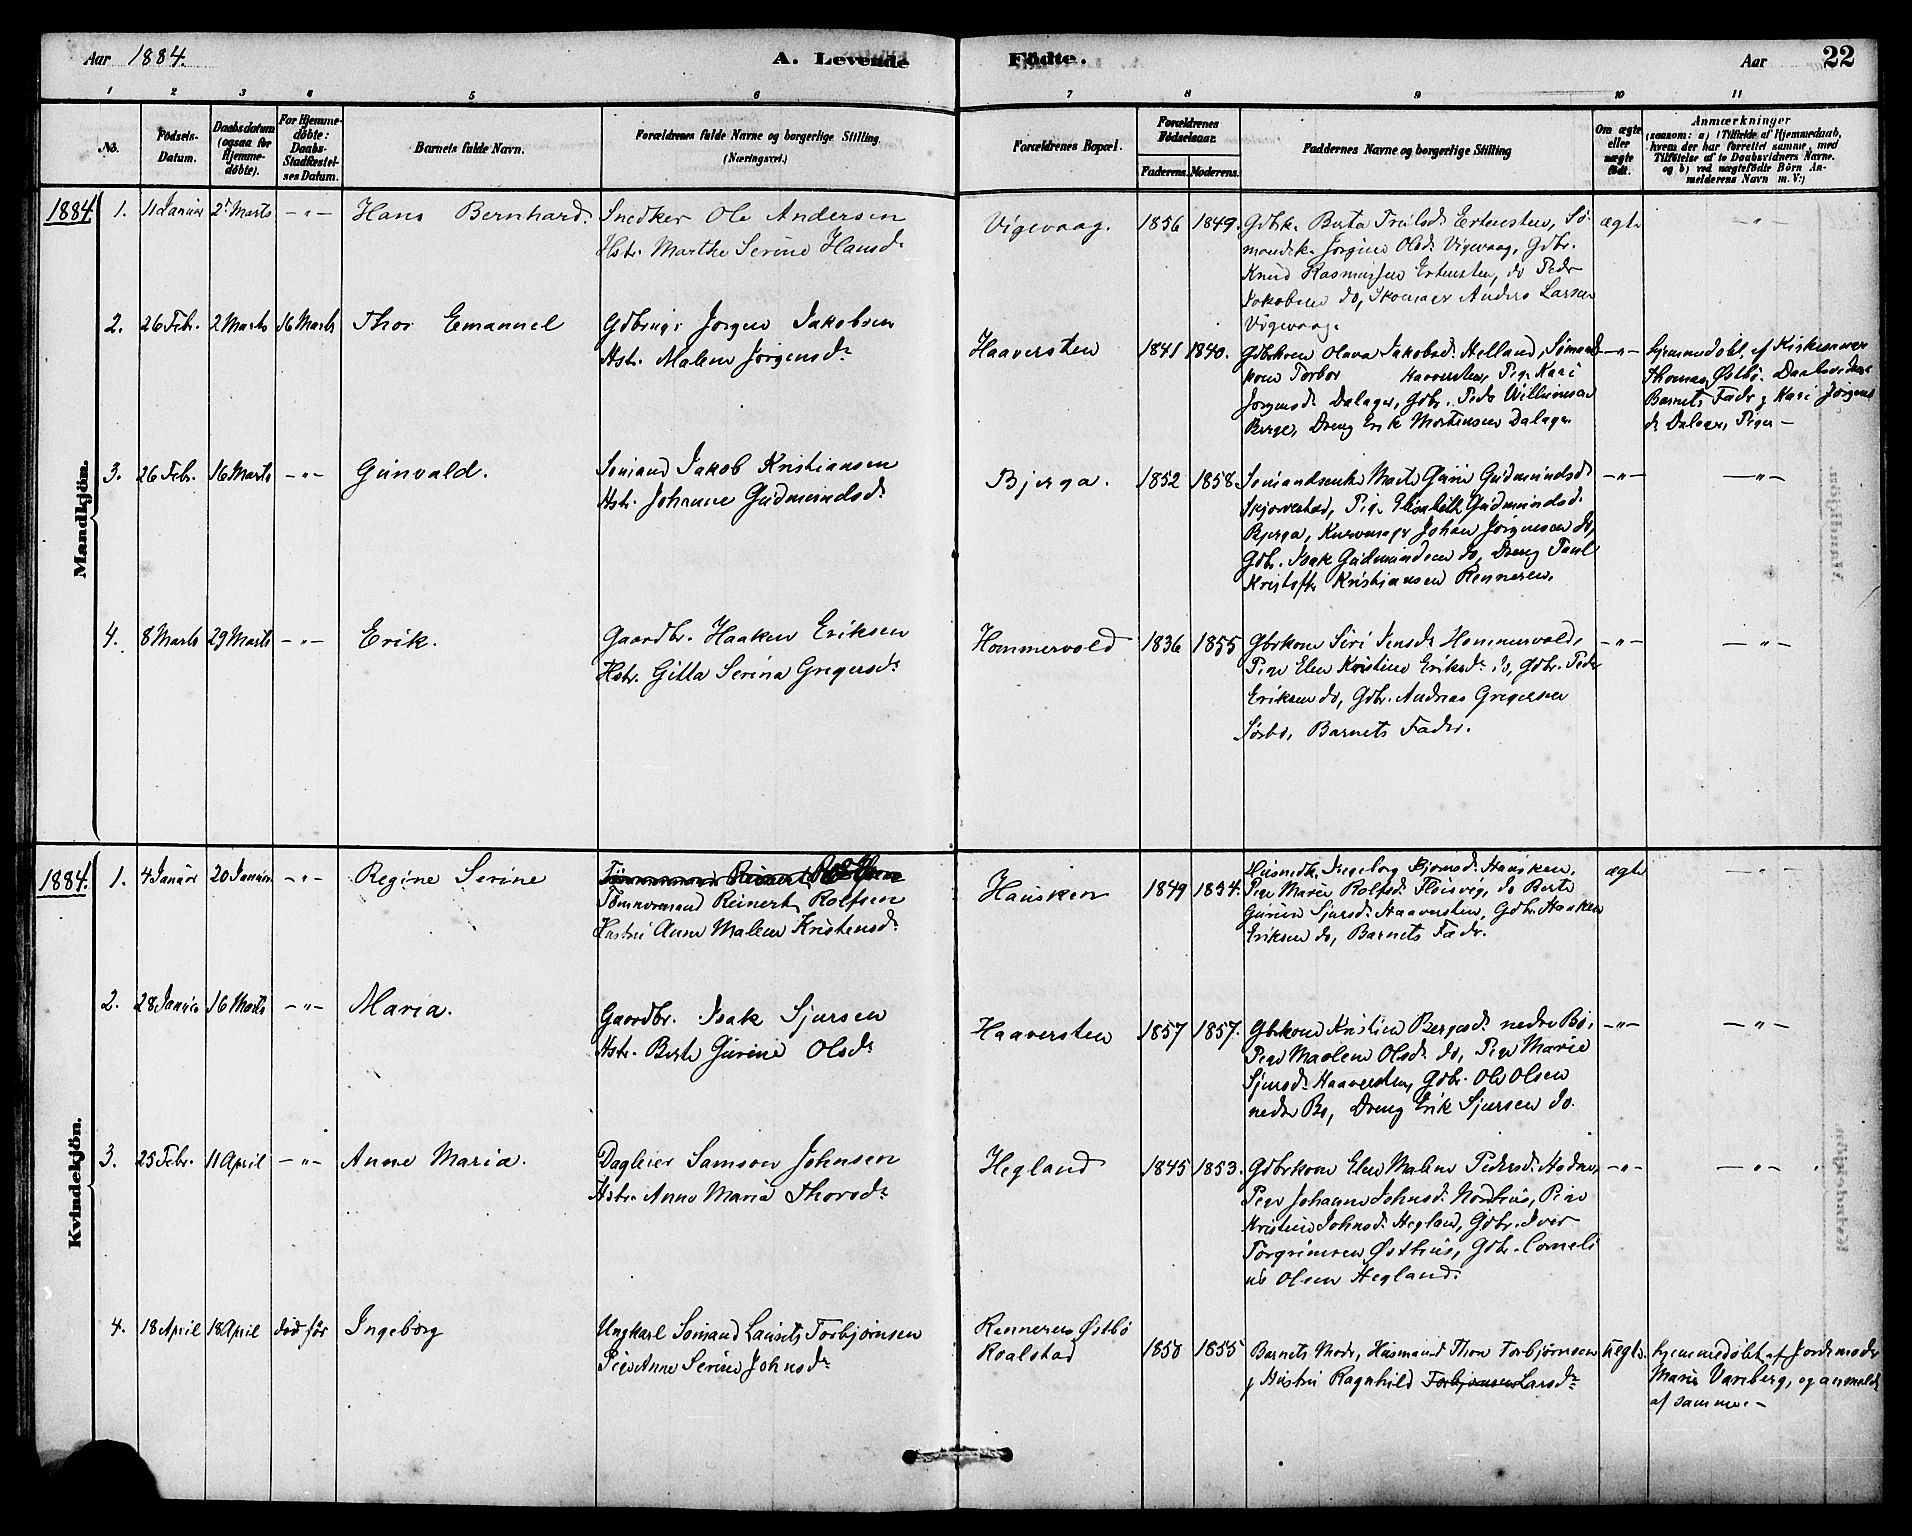 Aar 1884. A. Levende Födte. Aar 22
1 2 3 4 5 6 7 8 9 10 11
No.
Födsels-
Datum.
Daabsdatum
(ogsaa for
Hjemme-
döbte).
For Hjemme-
döbte:
Daabs-
Stadfæstel-
ses Datum.
Barnets fulde Navn.
Forældrenes fulde Navne og borgerlige Stilling
(Næringsvei.)
Forældrenes Bopæl.
Forældrenes
Födselsaar.
Faderens. Moderens.
Faddernes Navne og borgerlige Stilling
Om ægte
eller
uægte
födt.
Anmærkninger
(saasom: a) i Tilfælde af Hjemmedaab,
hvem der har forrettet samme, med
Tilföielse af to Daabsvidners Navne.
og b) ved uægtefödte Börn An-
melderens Navn m. V.:)
Mandkjön.
1884 1. 11 Januar 2den Marts -"- Hans Bernhard.
Snedker Ole Andersen
Hstr. Marthe Serine Hansdr
Vigevaag. 1856 1849.
Gdbrk. Berta Truلsdr Ertensten, Sø-
mandsk. Jorgine Olsdr Vigevaag, Gdbr.
Knud Rasmussen Ertensten, do Peder
Jakobsen do, Skomager Anders Larsen
Vigevaag.
ægte -"-
2. 26 Febr. 2 Marts 16 Marts Thor Emanuel
Gdbruger Jorgen Jakobsen
Hstr. Malene Jørgensdr
Haaversten 1841 1840.
Gdbrkone Olava Jakobsdr Helland, Sømands
kone Torbor Haaversten, Pige Kari
Jørgensdr Dalager, Gdbr. Peder Willumsen
Berge, Dreng Erik Mortensen Dalager
-"-
hjemmedøbt af Kirkesanger
Thomas Østbø. Daabsvidner
Barnets Fader og Kari Jørgens
dr Dalager, Pige-
3. 26 Febr. 16 Marts -"- Gunvald.
Sømand Jakob Kristiansen
Hstr. Johanne Gudmundsdr
Bjerga. 1852 1858.
Sømandsenke Marte Gurine Gudmundsdr
Skjørvestad, Pige Elisabeth Gudmundsdr
Bjerga, Kurvmager Johan Jørgensen do,
Gdbr. Isak Gudmundsen do, Dreng Paul
Kristoffer Kristiansen Renneren.
-"- -"-
4. 8 Marts 29 Marts -"- Erik.
Gaardbr. Haaken Eriksen
Hstr. Gitta Serina Gregersdr
Hommervold 1836 1855
Gbrkone Siri Jensdr Hommervold,
Pige Elen Kristine Eriksdr do, Gdbr. Peder
Eriksen do, Gdbr. Andreas Gregersen
Sørbø, Barnets Fader.
-"- -"-
Kvindekjön.
1884. 1. 4 Januar 20 Januar -"- Regine Serine
Tömmermand Reinert Rolfsen
Hustru Anne Malene Kristensdr
Hausken 1849 1854.
Husmdk. Ingeborg Bjornsdr Hausken,
Pige Marie Rolfsdr Floisvig, do Berte
Gurine Sjursdr Haaversten, Gdbr. Haaken
Eriksen do, Barnets Fader.
ægte -"-
2. 28 Januar 16 Marts -"- Maria.
Gaardbr. Isak Sjursen
Hstr. Berte Gurine Olsdr
Haaversten 1857 1857.
Gbrkone Kristine Bergesdr nedre Bø,
Pige Maalene Olsdr do, Pige Marie
Sjursdr Haaversten, Gdbr. Ole Olsen
nedre Bø, Dreng Erik Sjursen do.
-"- -"-
3. 25 Febr. 11 April -"- Anne Maria.
Dagleier Samson Johnsen
Hstr. Anne Maria Thorsdr
Hegland 1845 1853.
Gdbrkone Elen Malene Pedersdr Hodne,
Pige Johanne Johnsdr Nordhus, Pige
Kristine Johnsdr Hegland, Gdbr. Iver
Torgrimsen Østhus, Gdbr. Corneli
us Olsen Hegland.
-"- -"-
4. 18 April 18 April død før Ingeborg
Ungkarl Sømand Laurits Torbjørnsen
Pige Anne Serine Johnsdr
Renneren Østbø
Roalstad
1858 1855
Barnets Moder, Husmand Thore Torbjørnsen
og Hustru Ragnhild Torbjørnsen Larsdr
uægte.
hjemmedøbt af Jordemoder
Marie Vareberg, og anmeldt
af samme.-